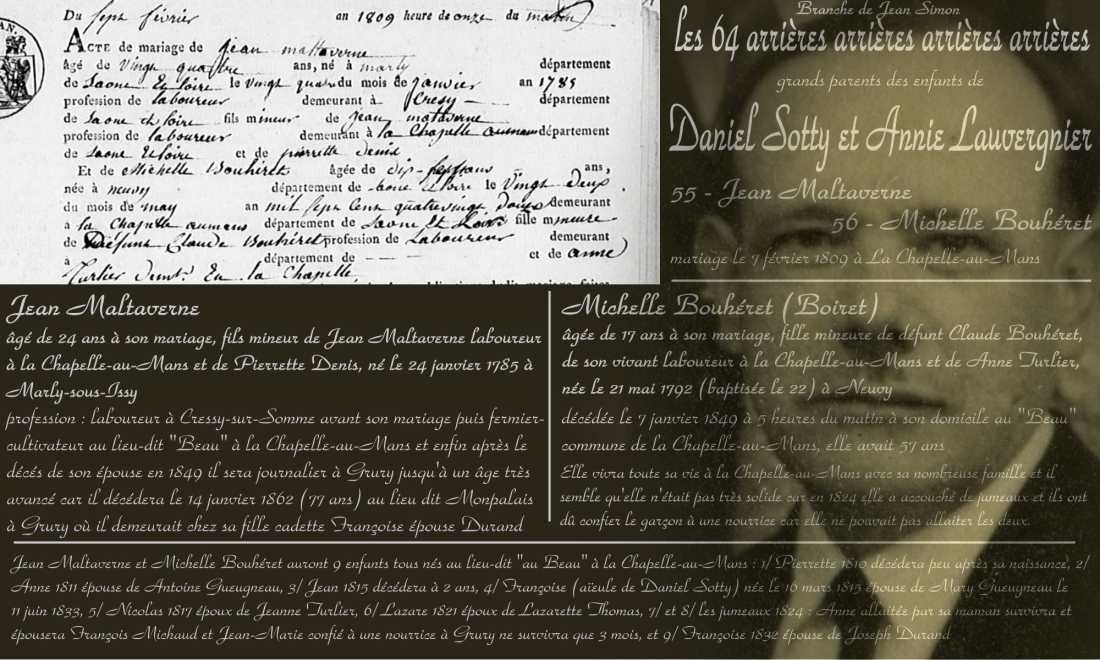 Du sept février an 1809 heure de onze du matin
ACTE de mariage de jean maltaverne
âgé de vingt quatre ans, né à marly département
de Saone et loire le vingt quatre du mois de janvier an 1785
profession de laboureur demeurant à Cresy département
de Saone et loire fils mineur de jean maltaverne
profession de laboureur demeurant à la Chapelle aumans département
de Saone et loire et de pierrette denis
Et de Michelle Bouhiret âgée de dix-sept ans,
née à neuvy département de Saone et loire le vingt deux
du mois de may an mil sept cent quatrevingt douze demeurant
à la Chapelle aumans département de Saone et Loire fille mineure
de Défunt Claude Bouhiret profession de Laboureur demeurant
à département de et de anne
Turlier demt. En la Chapelle
Branche de Jean Simon
les 64 arrières arrières arrières arrières
grands parents des enfants de
Daniel Sotty et Annie Lauvergnier
55 - Jean Maltaverne
56 - Michelle Bouhéret
mariage le 7 février 1809 à La Chapelle-au-Mans
Jean Maltaverne
âgé de 24 ans à son mariage, fils mineur de Jean Maltaverne laboureur
à la Chapelle-au-Mans et de Pierrette Denis, né le 24 janvier 1785 à
Marly-sous-Issy
profession : laboureur à Cressy-sur-Somme avant son mariage puis fermier-
cultivateur au lieu-dit "Beau" à la Chapelle-au-Mans et enfin après le
décés de son épouse en 1849 il sera journalier à Grury jusqu'à un âge très
avancé car il décédera le 14 janvier 1862 (77 ans) au lieu dit Monpalais
à Grury où il demeurait chez sa fille cadette Françoise épouse Durand
Michelle Bouhéret (Boiret)
âgée de 17 ans à son mariage, fille mineure de défunt Claude Bouhéret,
de son vivant laboureur à la Chapelle-au-Mans et de Anne Turlier,
née le 21 mai 1792 (baptisée le 22) à Neuvy
décédée le 7 janvier 1849 à 5 heures du matin à son domicile au "Beau"
commune de la Chapelle-au-Mans, elle avait 57 ans
Elle vivra toute sa vie à la Chapelle-au-Mans avec sa nombreuse famille et il
semble qu'elle n'était pas très solide car en 1824 elle a accouché de jumeaux et ils ont
dû confier le garçon à une nourrice car elle ne pouvait pas allaiter les deux.
Jean Maltaverne et Michelle Bouhéret auront 9 enfants tous nés au lieu-dit "au Beau" à la Chapelle-au-Mans : 1/ Pierrette 1810 décédera peu après sa naissance, 2/
Anne 1811 épouse de Antoine Gueugneau, 3/ Jean 1815 décédera à 2 ans, 4/ Françoise (aïeule de Daniel Sotty) née le 16 mars 1815 épouse de Mary Gueugneau le
11 juin 1833, 5/ Nicolas 1817 époux de Jeanne Turlier, 6/ Lazare 1821 époux de Lazarette Thomas, 7/ et 8/ les jumeaux 1824 : Anne allaitée par sa maman survivra et
épousera François Michaud et Jean-Marie confié à une nourrice à Grury ne survivra que 3 mois, et 9/ Françoise 1832 épouse de Joseph Durand